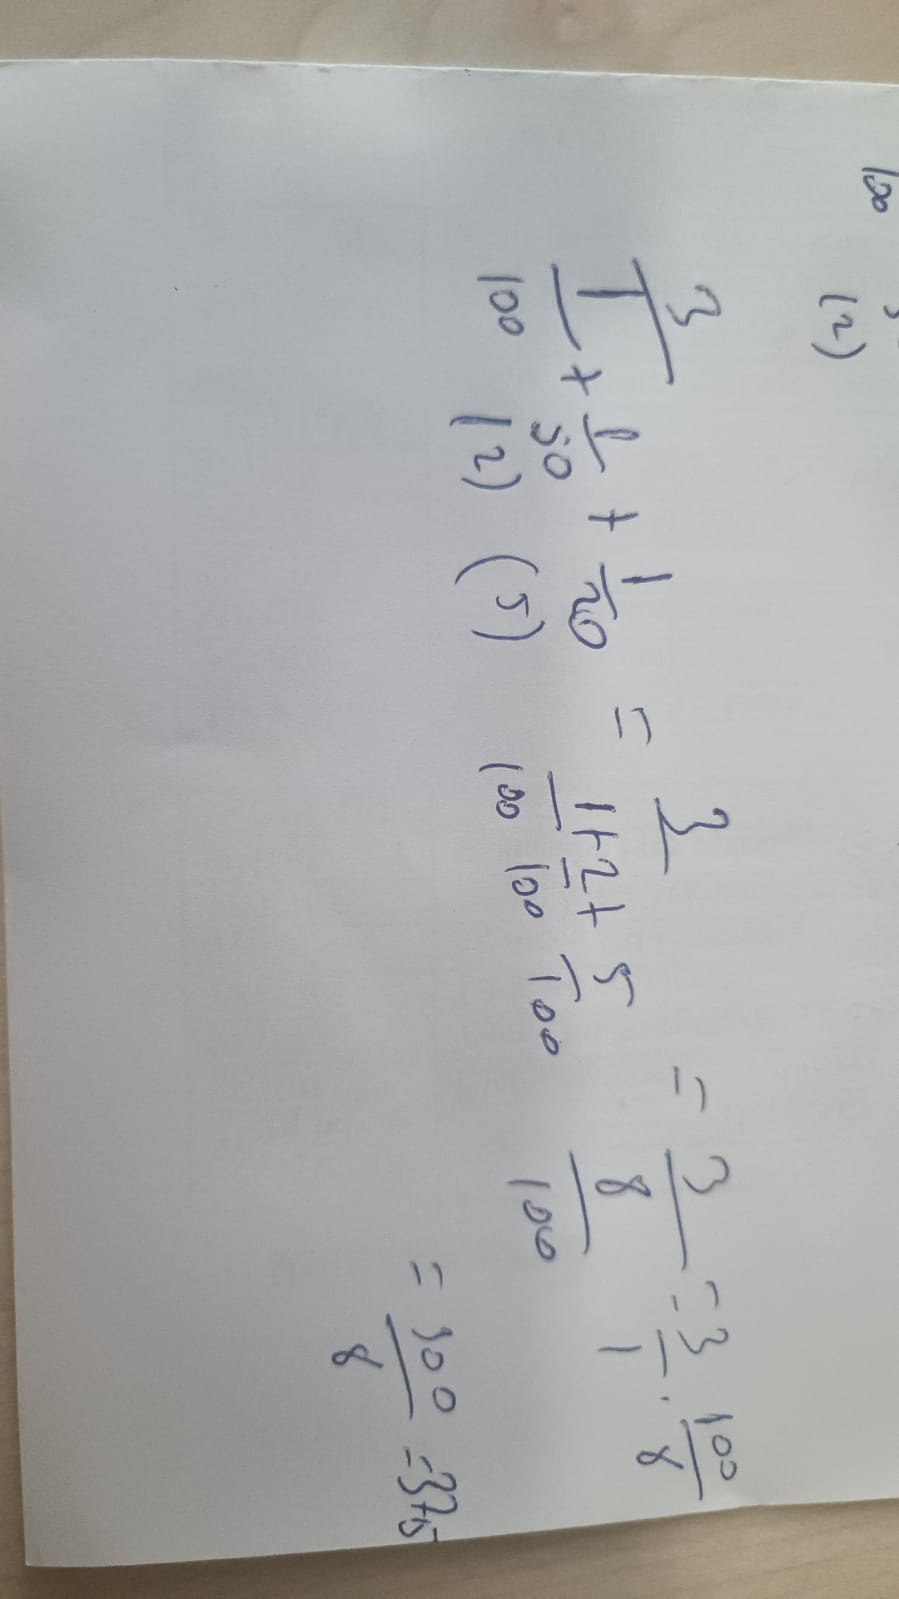 100 (2)
3
1/100 + 1/50 + 1/20 = 3 / (1/100 + 2/100 + 5/100) = 3 / (8/100) = 3/1 · 100/8
(2) (5)
= 300/8 = 37,5